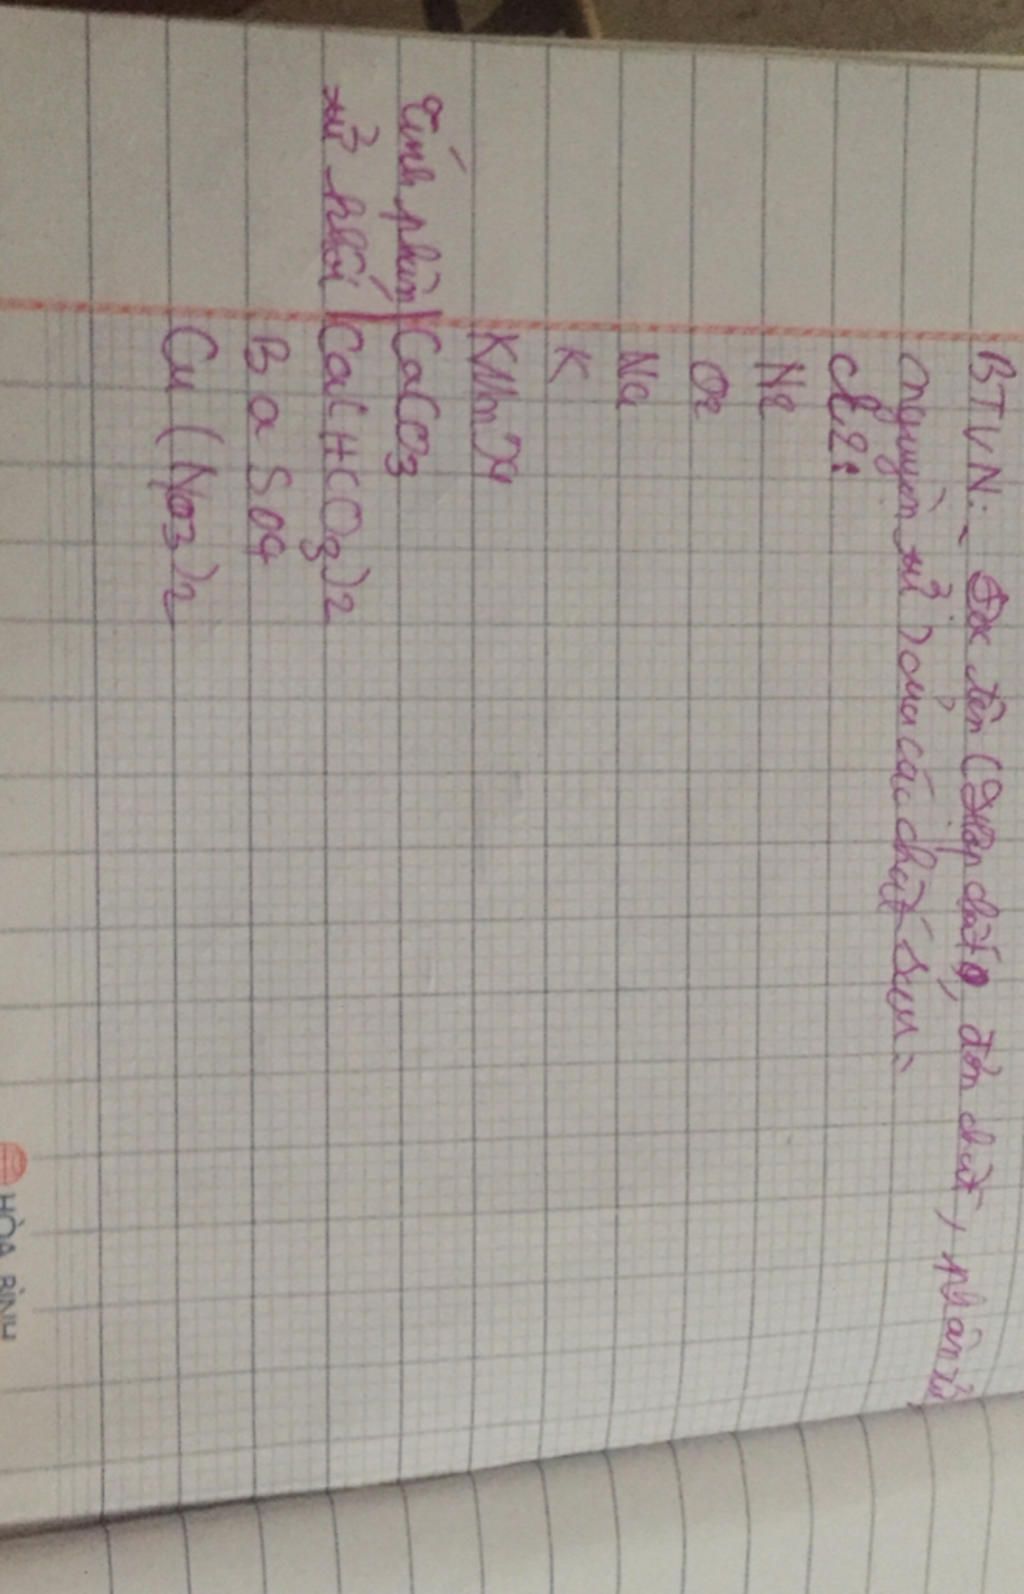 BTVN: - Đọc tên (Hợp chất, đơn chất, phân tử,
nguyên tử) của các chất sau:
Cl2:
N2
O2
Na
K
KMnO4
Tính phân CaCO3
tử khối Ca(HCO3)2
BaSO4
Cu(NO3)2
HÒA BÌNH